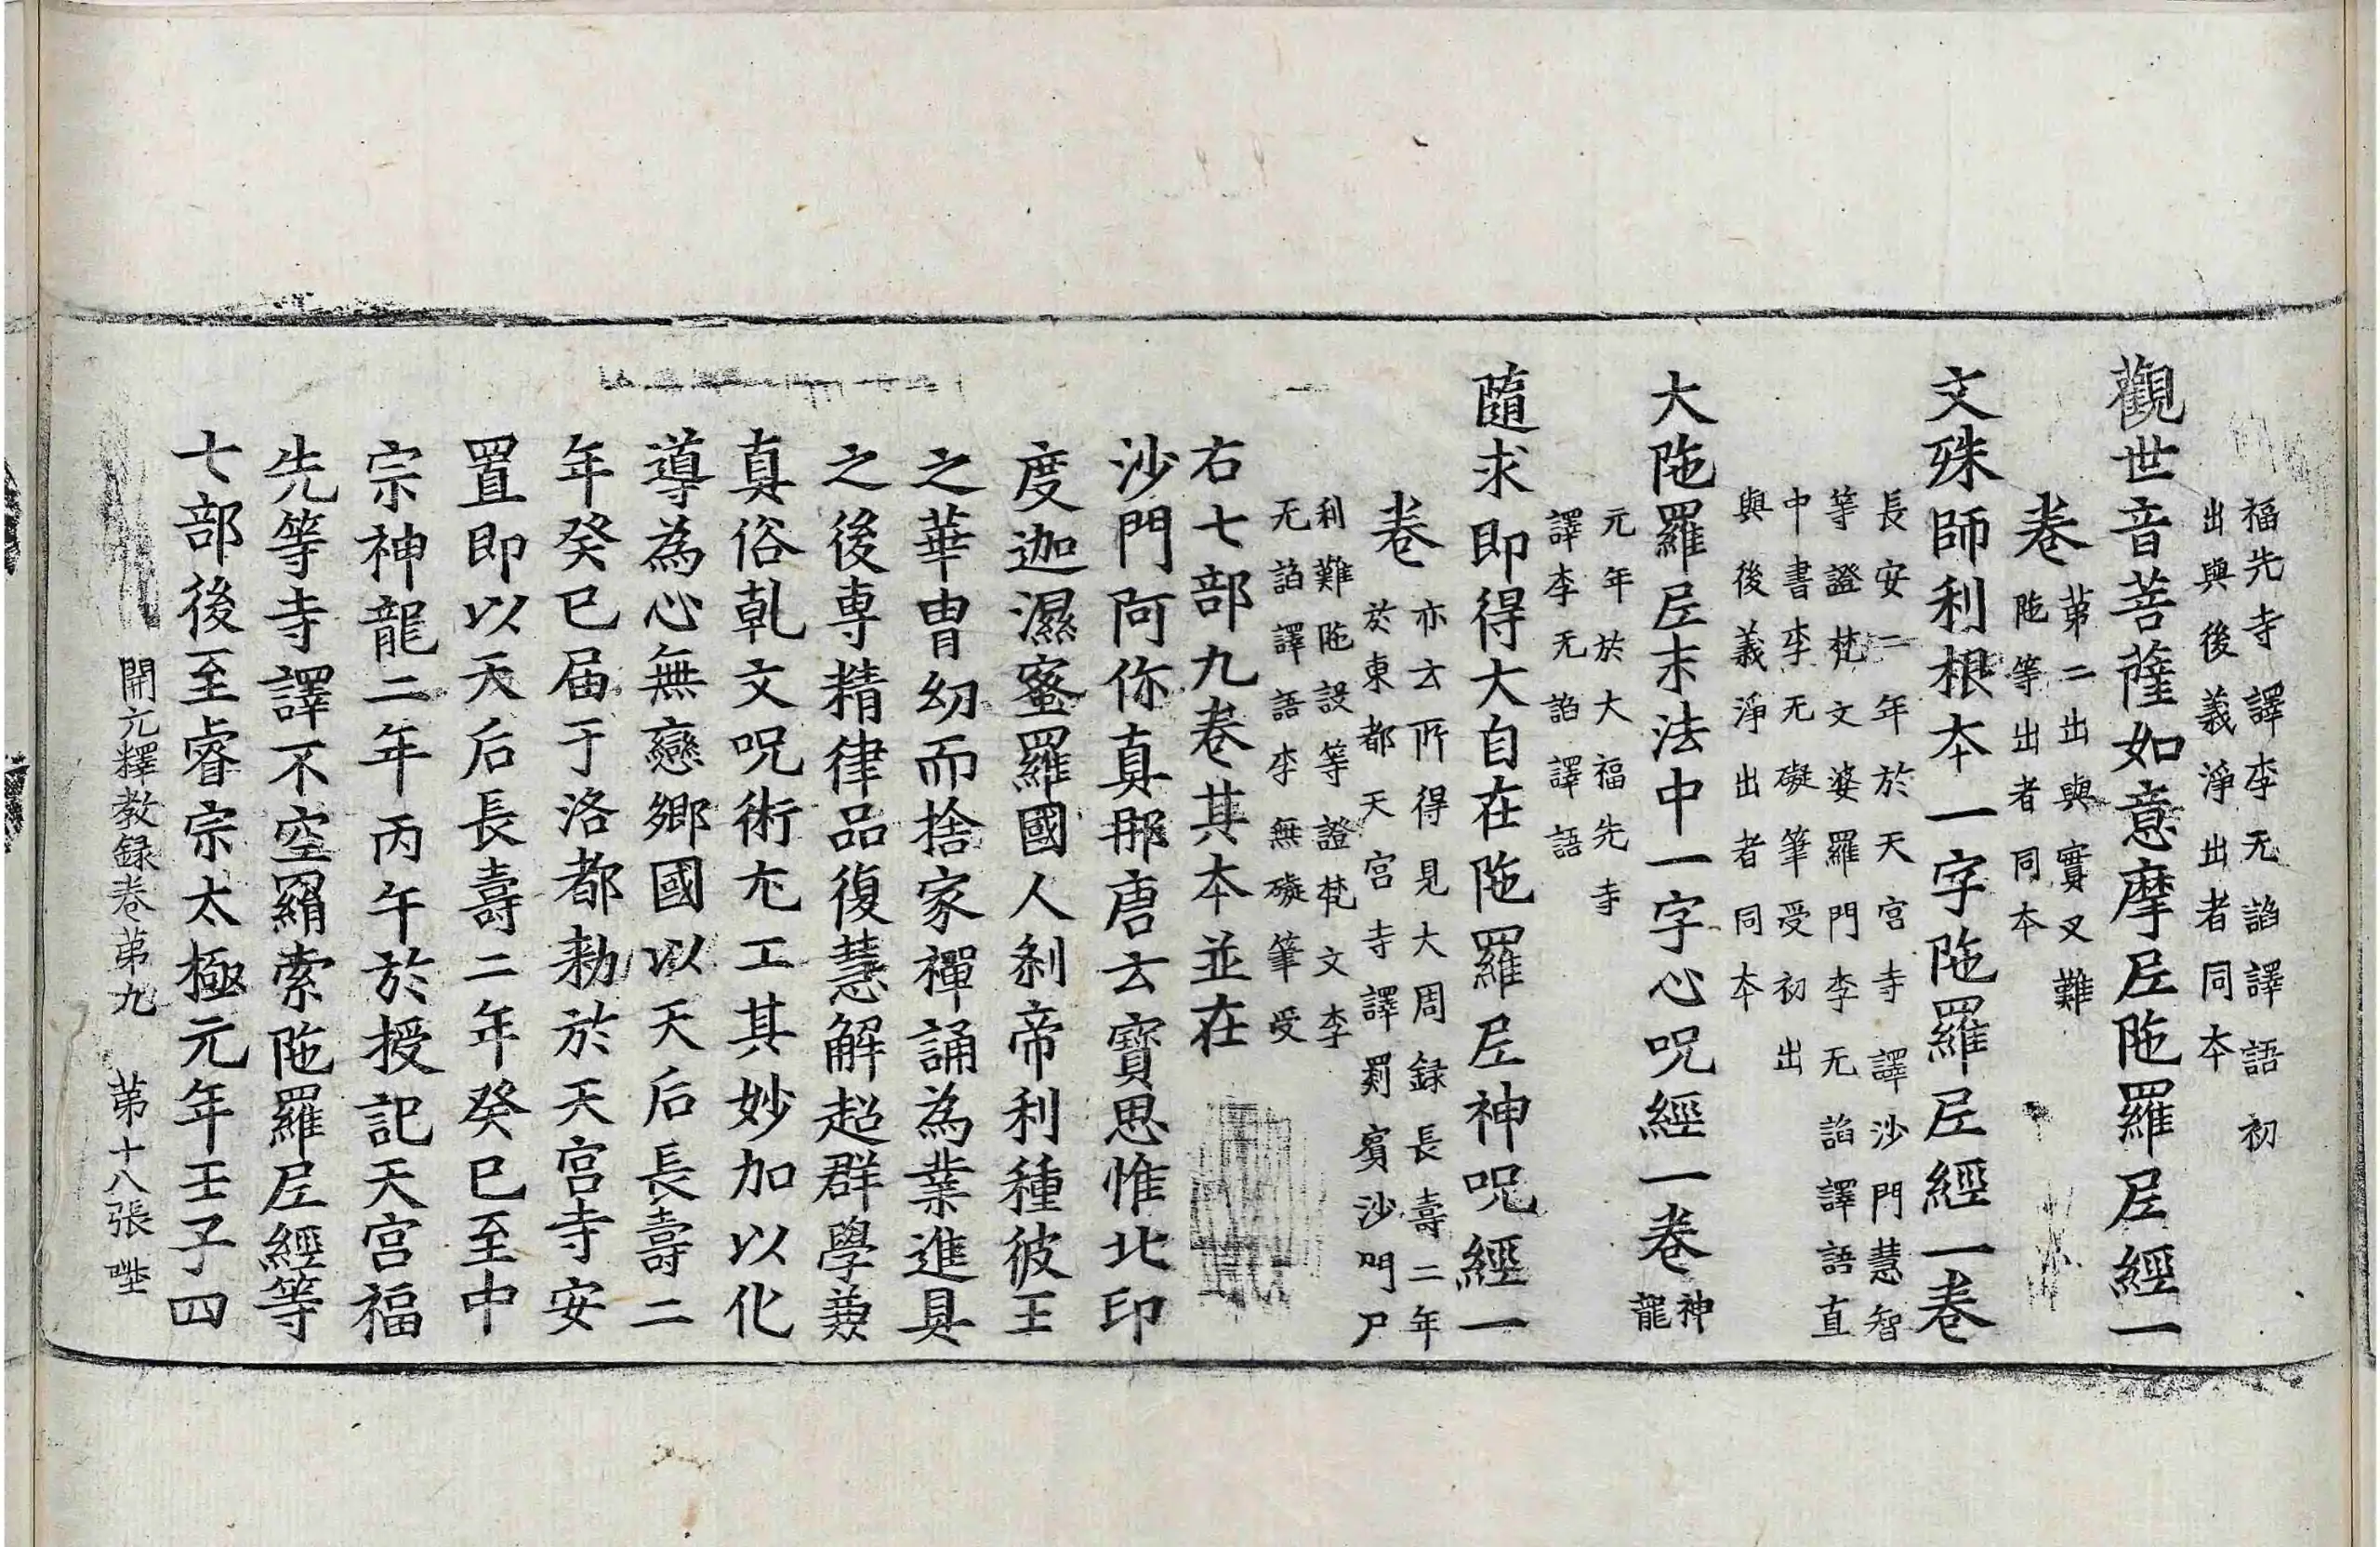 福先寺譯李无諂譯語初
出與後義淨出者同本
觀世音菩薩如意摩𡰱陁羅𡰱經一
卷
苐二出與實叉難
陁等出者同本
文殊師利根夲一字陁羅𡰱經一卷
長安二年於天宫寺譯沙門慧智
等證梵文婆羅門李无諂譯語直
中書李无礙筆受初出
與後義淨出者同夲
大陁羅𡰱末法中一字心呪經一卷
神
龍
元年於大福先寺
譯李无諂譯語
隨求即得大自在陁羅𡰱神呪經一
卷
亦云所得見大周録長壽二年
於東都天宫寺譯罽賓沙門尸
利難陁設等證梵文李
无諂譯語李無礙筆受
右七部九卷其夲並在
沙門阿你真那唐云寶思惟北印
度迦濕蜜羅國人剎帝利種彼王
之華胄幼而捨家禪誦為業進具
之後専精律品復慧解超群學兼
真俗乹文呪術尤工其妙加以化
導為心無戀鄉國以天后長壽二
年癸巳届于洛都勑於天宫寺安
置即以天后長壽二年癸巳至中
宗神龍二年丙午於授記天宫福
先等寺譯不空羂索陁羅𡰱經等
七部後至睿宗太極元年壬子四
開元釋教録卷苐九 苐十八張 陞